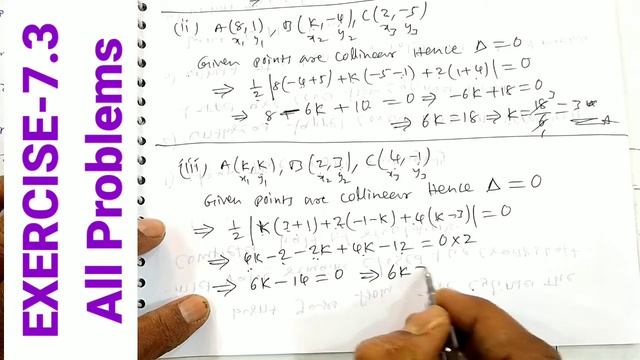 EXERCISE-7.3
All Problems
(ii) A(8,1), B(K,-4), C(2,-5)
x₁ y₁ x₂ y₂ x₃ y₃
Given points are collinear Hence Δ = 0
⇒ 1/2 |8(-4+5)+K(-5-1)+2(1+4)| = 0
⇒ 8-6K+10 = 0 ⇒ -6K+18=0
⇒ 6K=18 ⇒ K=18/6=3
(iii) A(K,K), B(2,3), C(4,-1)
x₁ y₁ x₂ y₂ x₃ y₃
Given points are collinear Hence Δ = 0
⇒ 1/2 |K(3+1)+2(-1-K)+4(K-3)| = 0
⇒ 4K-2-2K+4K-12 = 0×2
⇒ 6K-14=0 ⇒ 6K=